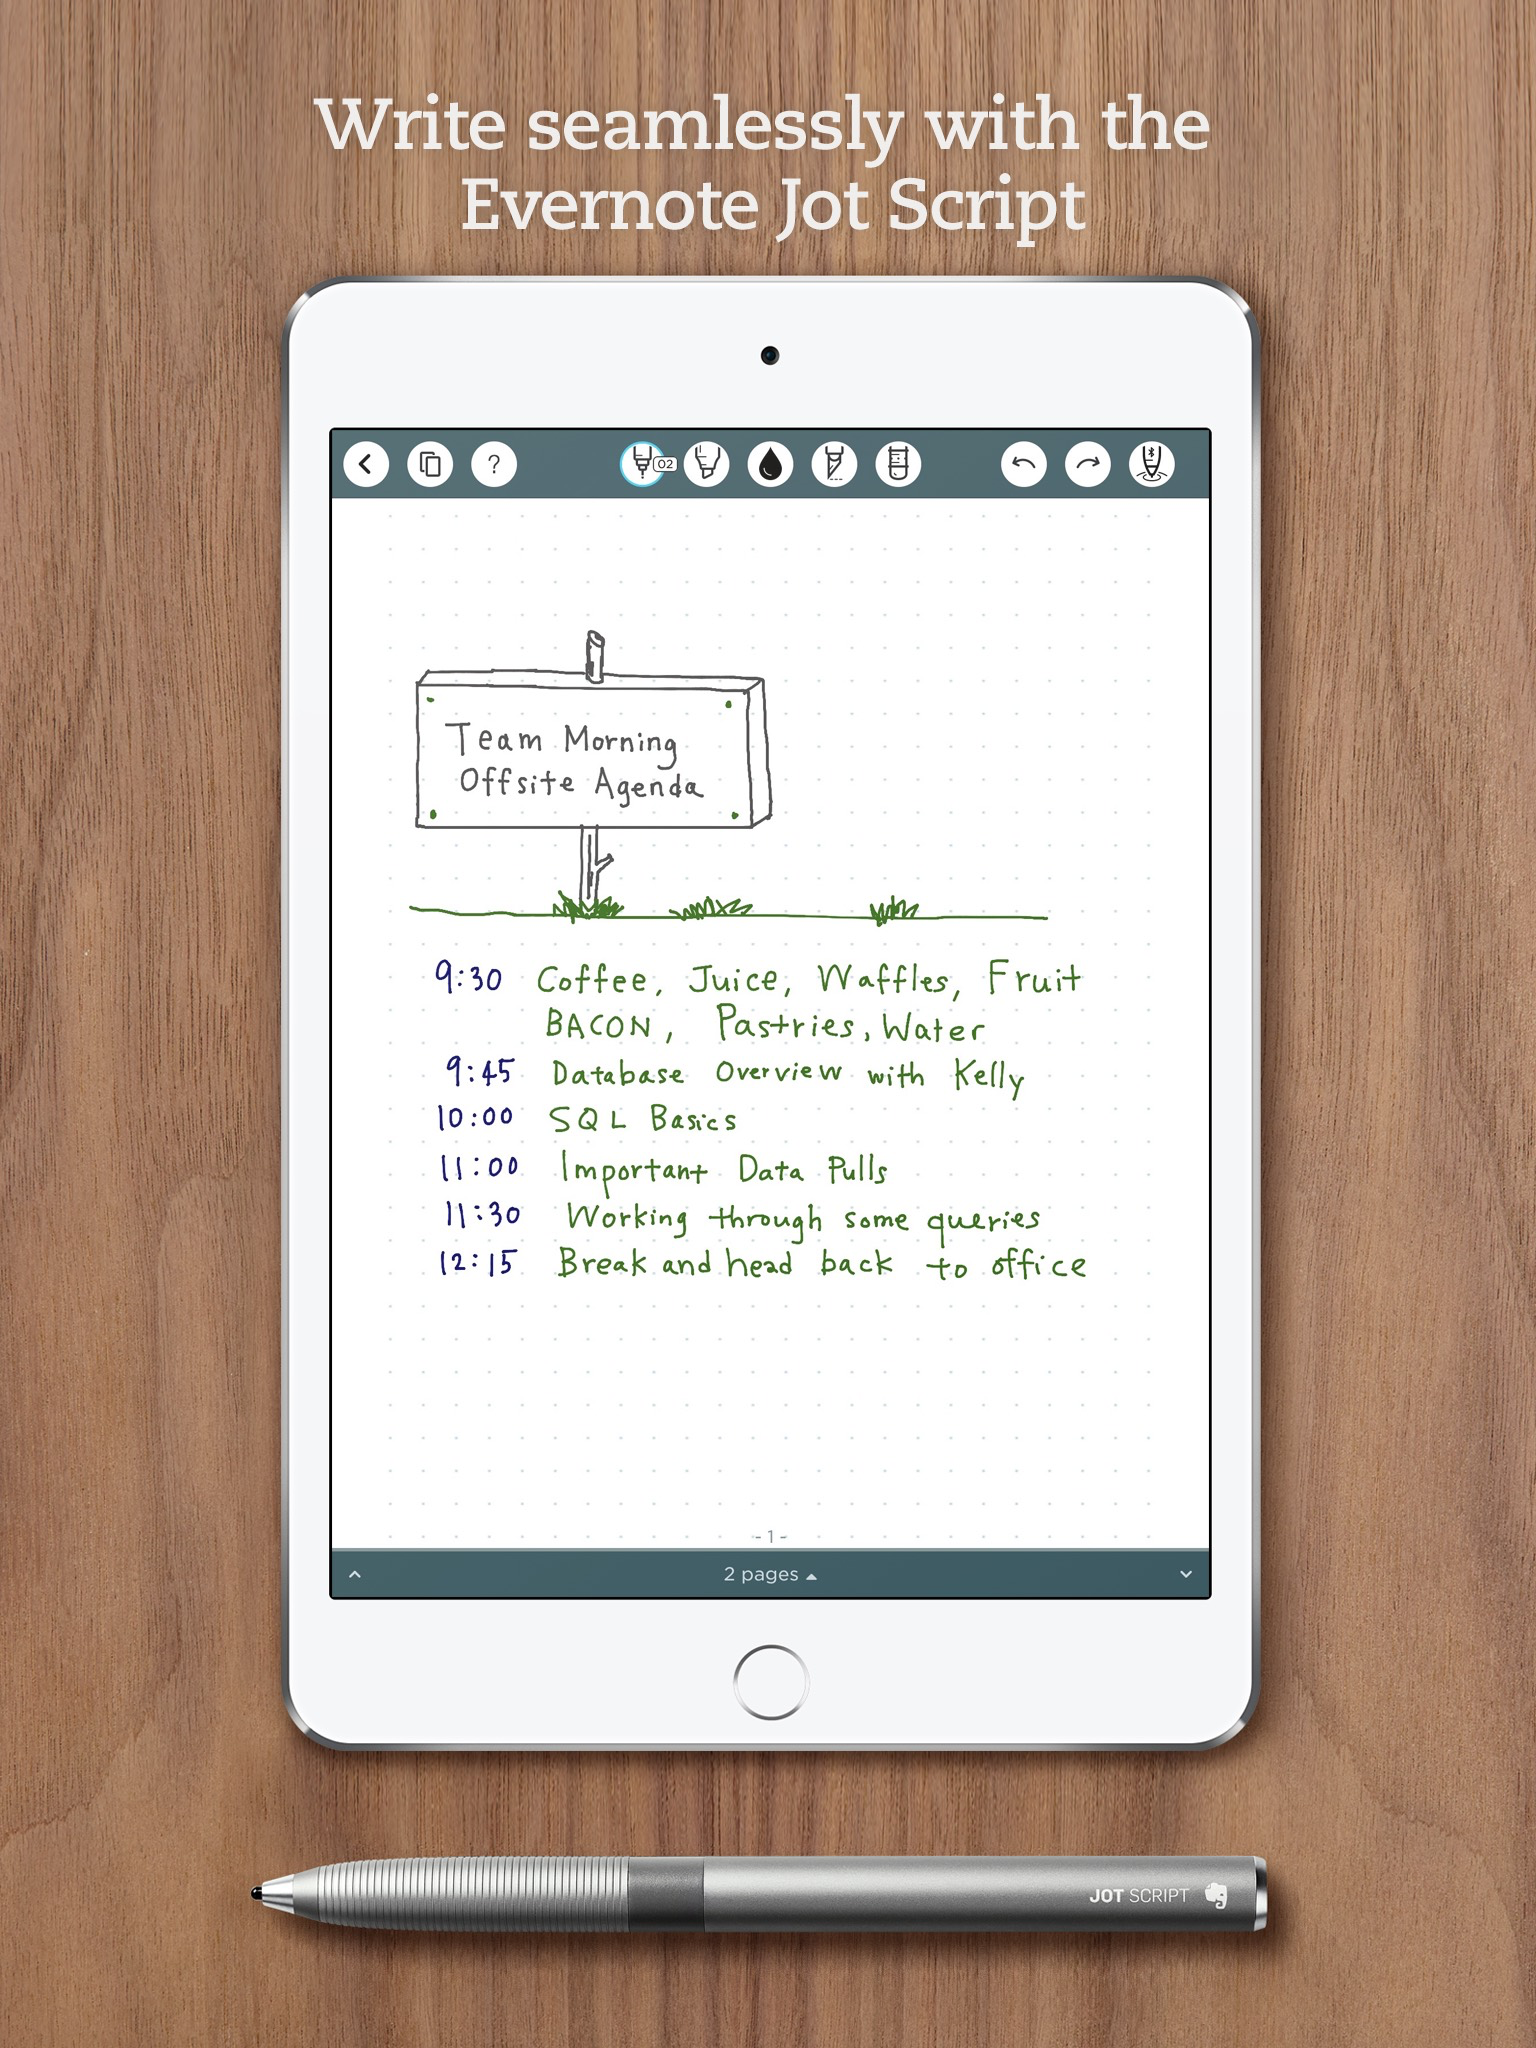 Write seamlessly with the
Evernote Jot Script
?
02
Team Morning
Offsite Agenda
9:30 Coffee, Juice, Waffles, Fruit
BACON, Pastries, Water
9:45 Database Overview with Kelly
10:00 SQL Basics
11:00 Important Data Pulls
11:30 Working through some queries
12:15 Break and head back to office
- 1 -
2 pages
JOT SCRIPT